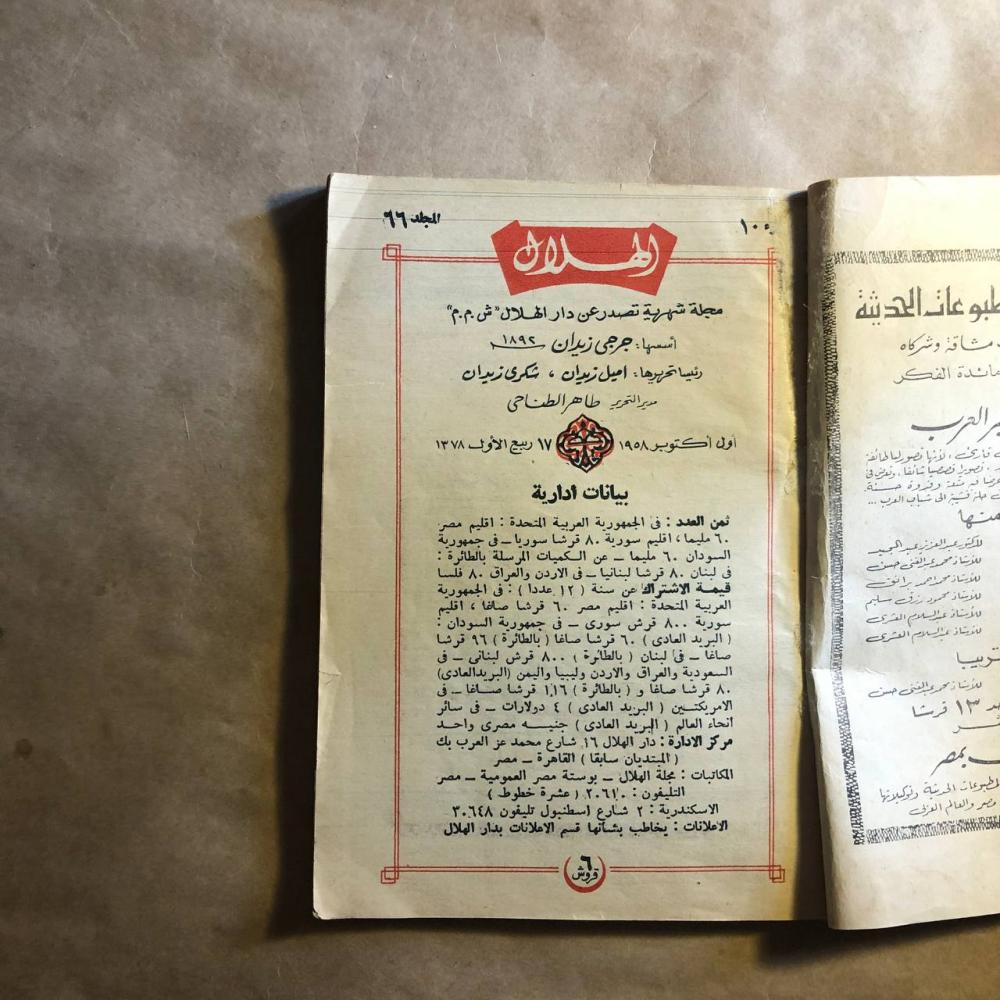 ١٠
المجلد ٦٦
الهلال
مجلة شهرية تصدر عن دار الهلال "ش.م.م"
أسسها: جرجى زيدان ١٨٩٢
رئيسا تحريرها: اميل زيدان ، شكرى زيدان
مدير التحرير طاهر الطناحى
أول أكتوبر ١٩٥٨ ١٧ ربيع الأول ١٣٧٨
بيانات ادارية
ثمن العدد : فى الجمهورية العربية المتحدة : اقليم مصر
٦٠ مليما ، اقليم سورية ٨٠ قرشا سوريا ــ فى جمهورية
السودان ٦٠ مليما ــ عن الكميات المرسلة بالطائرة :
فى لبنان ٨٠ قرشا لبنانيا ــ فى الاردن والعراق ٨٠ فلسا
قيمة الاشتراك عن سنة ( ١٢ عددا ) : فى الجمهورية
العربية المتحدة : اقليم مصر ٦٠ قرشا صاغا ، اقليم
سورية ٨٠٠ قرش سورى ــ فى جمهورية السودان :
( البريد العادى ) ٦٠ قرشا صاغا ( بالطائرة ) ٩٦ قرشا
صاغا ــ فى لبنان ( بالطائرة ) ٨٠٠ قرش لبنانى ــ فى
السعودية والعراق والاردن وليبيا واليمن (البريدالعادى)
٨٠ قرشا صاغا و ( بالطائرة ) ١١٦ قرشا صاغا ــ فى
الامريكتين ( البريد العادى ) ٤ دولارات ــ فى سائر
انحاء العالم ( البريد العادى ) جنيه مصرى واحد
مركز الادارة : دار الهلال ١٦ شارع محمد عز العرب بك
( المبتديان سابقا ) القاهرة ــ مصر
المكاتبات : مجلة الهلال ــ بوستة مصر العمومية ــ مصر
التليفون : ٢٠٦١٠ ( عشرة خطوط )
الاسكندرية : ٢ شارع اسطنبول تليفون ٣٠٦٤٨
الاعلانات : يخاطب بشأنها قسم الاعلانات بدار الهلال
٦
قروش
الحديثة
مشاقة وشركاه
مائدة الفكر
العرب
منها
للدكتور عبد العزيز عبد المجيد
للأستاذ محمد عبد الغنى حسن
للأستاذ محمد احمد برانق
للأستاذ محمود رزق سليم
للأستاذ عبد السلام العشرى
للأستاذ عبد السلام العشرى
للأستاذ محمد عبد الغنى حسن
١٣ قرشا
بمصر
مصر والعالم العربى